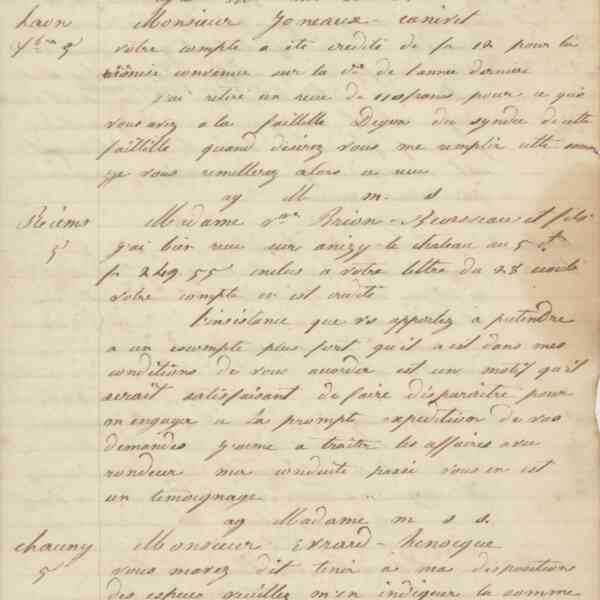 Laon Monsieur Joneaux-canivet
9bre 5 votre compte a été credité de fr 12 pour la
remise convenue sur la de de l'annee derniere
j'ai retiré un recu de 110 francs pour ce que
vous avez a la faillille Deyon du syndic de cette
faillille quand désirez vous me remplir cette somme
je vous remitterez alors ce recu
ag M m. s
Rheims Madame Vve Brion- et fils
5 j'ai bien recu sur anizy-le chateau au 5 ct
fr 249 55 inclus a votre lettre du 28 écoulé
votre compte en est credité
L'insistance que vs apportez à pretendre
a un escompte plus fort qu'il n'est dans mes
conditions de vous accorder est un motif qu'il
serait satisfaisant de faire disparaitre pour
m'engager a la prompte expedition de vos
demandes j'aime a traiter les affaires avec
rondeur ma conduite passé vous en est
un temoignage
ag Madame m s s.
Chauny Monsieur Evrard-henocque
5 vous m'avez dit tenir à mes dispositions
des especes veuillez m'en indiquer la somme